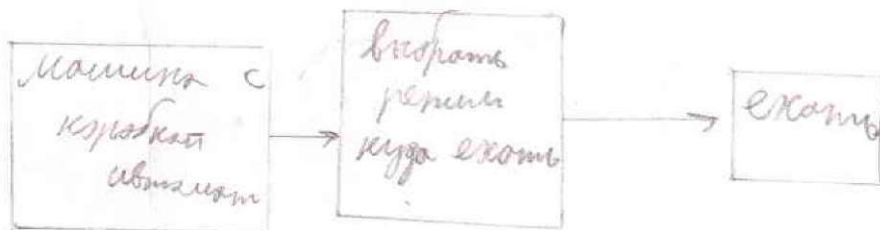 машина с
коробкой
автомат
выбрать
режим
куда ехать
ехать